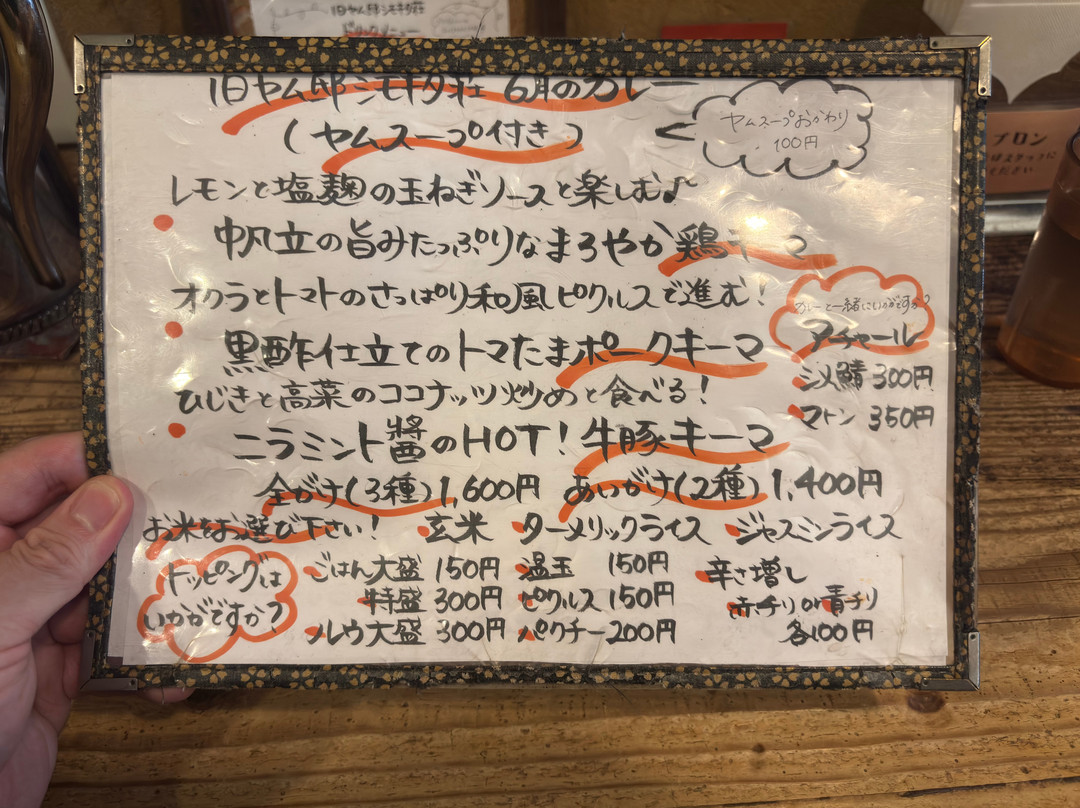 旧ヤム邸シモキタ荘
ドリンクメニュー
旧ヤム邸シモキタ荘 6月のカレー
(ヤムスープ付き)
ヤムスープおかわり
100円
レモンと塩麹の玉ねぎソースと楽しむ♪
帆立の旨みたっぷりなまろやか鶏キーマ
オクラとトマトのさっぱり和風ピクルスで進む!
カレーと一緒にいかがですか?
アチャール
シメ鯖 300円
マトン 350円
黒酢仕立てのトマたまポークキーマ
ひじきと高菜のココナッツ炒めと食べる!
ニラミント醬のHOT!牛豚キーマ
全がけ(3種)1,600円 あいがけ(2種)1,400円
お米をお選び下さい! 玄米 ターメリックライス ジャスミンライス
トッピングは
いかがですか?
ごはん大盛 150円 温玉 150円 辛さ増し
特盛 300円 ピクルス 150円 赤チリor青チリ
ルウ大盛 300円 パクチー 200円 各100円
プロン
ください